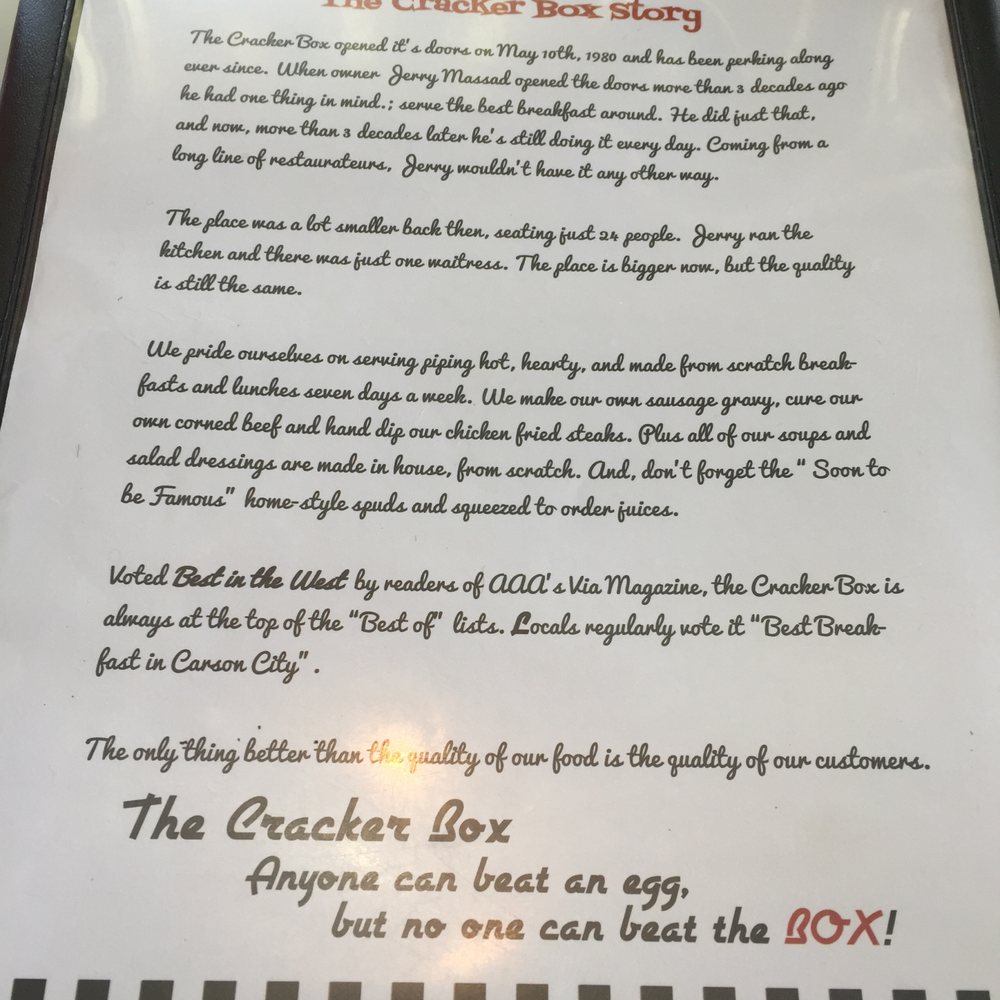 The Cracker Box Story
The Cracker Box opened it's doors on May 10th, 1980 and has been perking along
ever since. When owner Jerry Massad opened the doors more than 3 decades ago
he had one thing in mind.; serve the best breakfast around. He did just that,
and now, more than 3 decades later he's still doing it every day. Coming from a
long line of restaurateurs, Jerry wouldn't have it any other way.
The place was a lot smaller back then, seating just 24 people. Jerry ran the
kitchen and there was just one waitress. The place is bigger now, but the quality
is still the same.
We pride ourselves on serving piping hot, hearty, and made from scratch break-
fasts and lunches seven days a week. We make our own sausage gravy, cure our
own corned beef and hand dip our chicken fried steaks. Plus all of our soups and
salad dressings are made in house, from scratch. And, don't forget the " Soon to
be Famous" home-style spuds and squeezed to order juices.
Voted Best in the West by readers of AAA's Via Magazine, the Cracker Box is
always at the top of the "Best of" lists. Locals regularly vote it "Best Break-
fast in Carson City" .
The only thing better than the quality of our food is the quality of our customers.
The Cracker Box
Anyone can beat an egg,
but no one can beat the BOX!